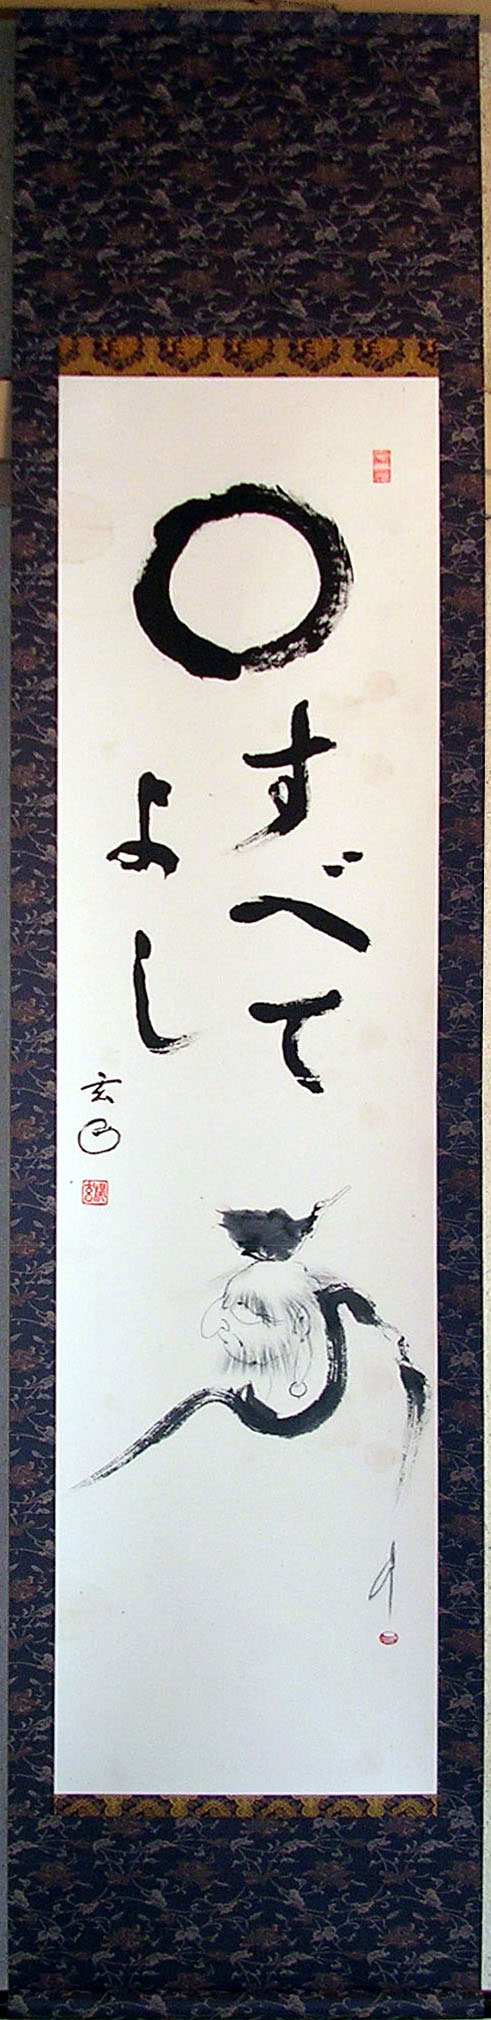 すべて
よし
玄